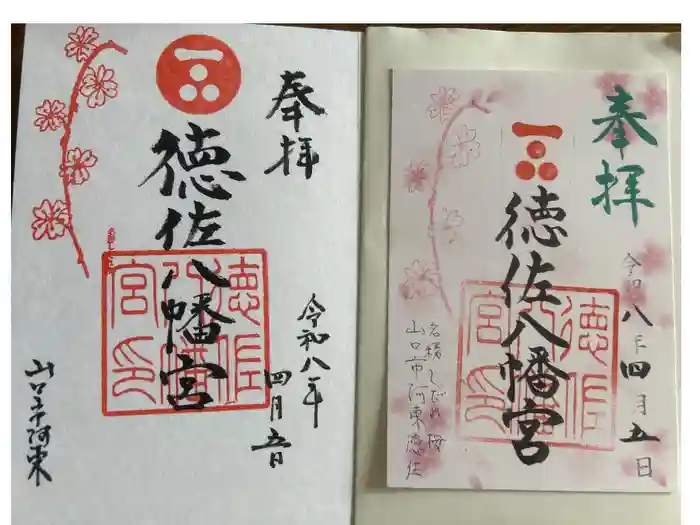 奉拝
徳佐八幡宮
徳佐八幡宮印
令和八年
四月五日
山口市阿東
奉拝
徳佐八幡宮
徳佐八幡宮印
令和八年四月五日
名勝しだれ桜
山口市阿東徳佐